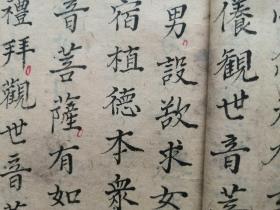 儀觀世音菩
男設欲求女
宿植德本衆
音菩薩有如
禮拜觀世音菩